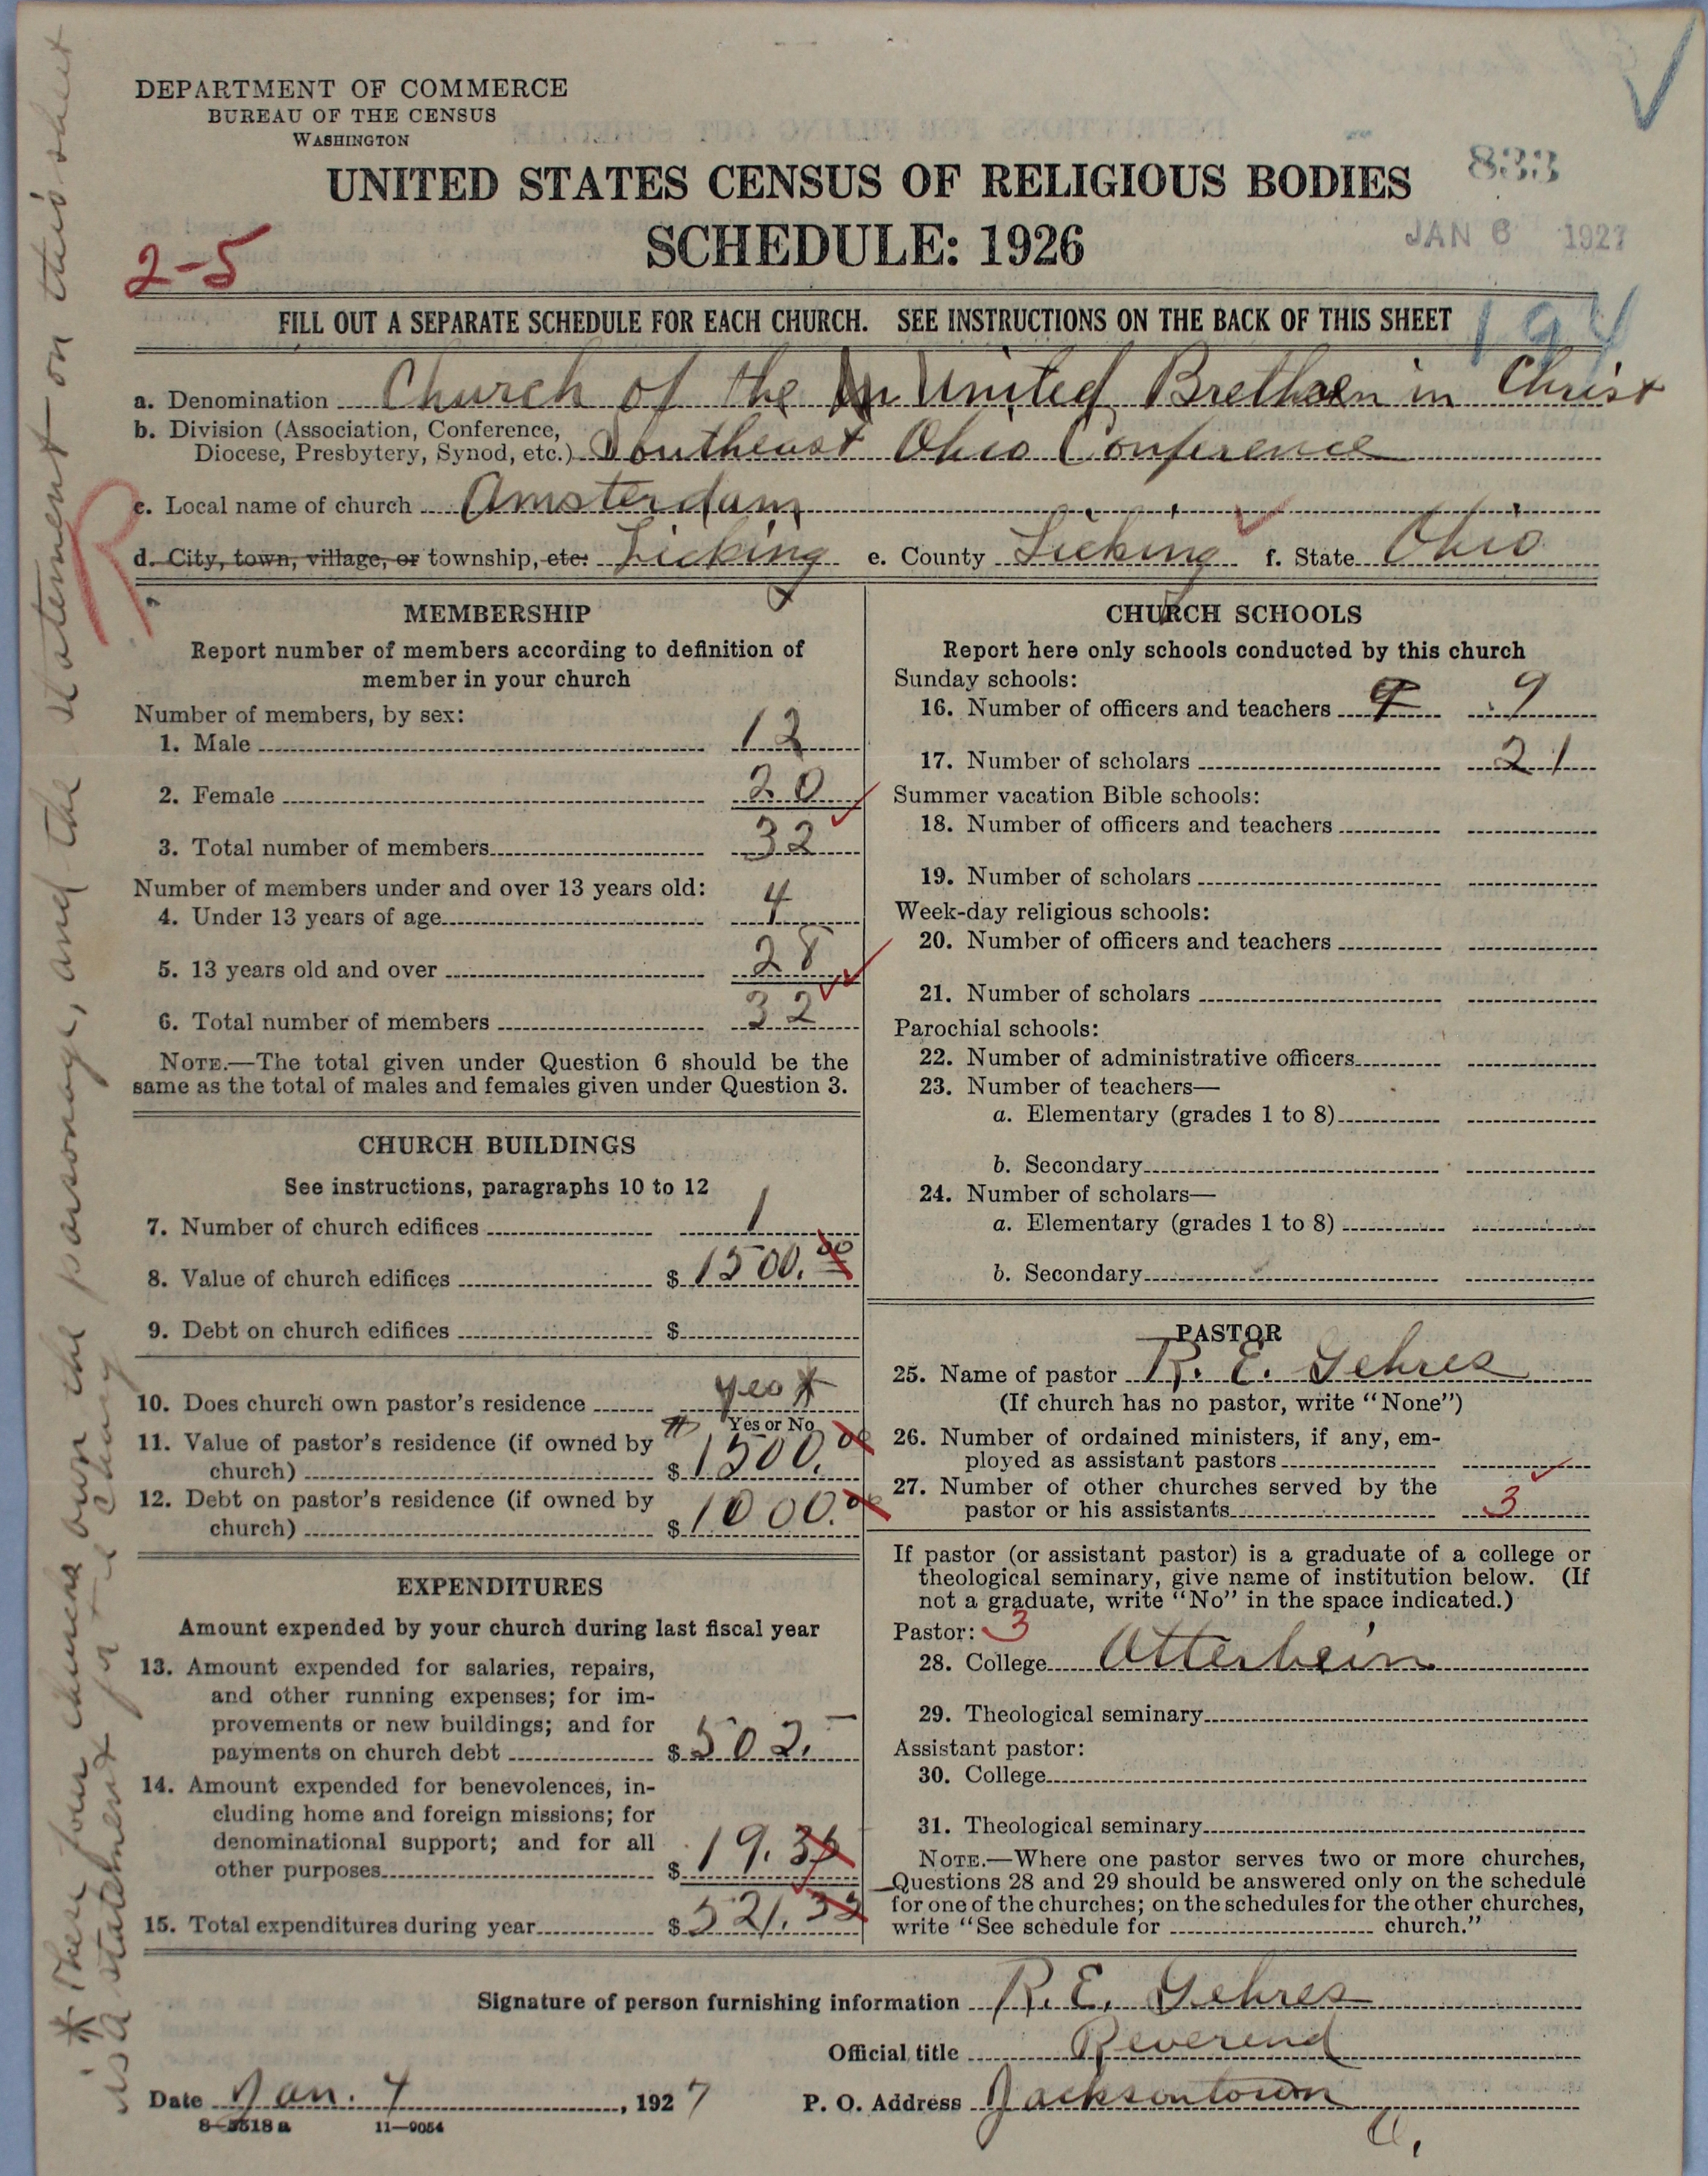 DEPARTMENT OF COMMERCE
BUREAU OF THE CENSUS
WASHINGTON
UNITED STATES CENSUS OF RELIGIOUS BODIES
833
SCHEDULE: 1926
JAN 6 1927
2-5
FILL OUT A SEPARATE SCHEDULE FOR EACH CHURCH. SEE INSTRUCTIONS ON THE BACK OF THIS SHEET
194
a. Denomination Church of the United Brethren in Christ
b. Division (Association, Conference,
Diocese, Presbytery, Synod, etc.) Southeast Ohio Conference
R
c. Local name of church Amsterdam
d. City, town, village, or township, etc. Licking e. County Licking f. State Ohio
MEMBERSHIP
Report number of members according to definition of
member in your church
Number of members, by sex:
1. Male 12
2. Female 20
3. Total number of members 32
Number of members under and over 13 years old:
4. Under 13 years of age 4
5. 13 years old and over 28
6. Total number of members 32
NOTE.—The total given under Question 6 should be the
same as the total of males and females given under Question 3.
CHURCH BUILDINGS
See instructions, paragraphs 10 to 12
7. Number of church edifices 1
8. Value of church edifices $ 1500.00
9. Debt on church edifices $
10. Does church own pastor's residence yes *
Yes or No
11. Value of pastor's residence (if owned by
church) $ 1500.00
12. Debt on pastor's residence (if owned by
church) $ 1000.00
EXPENDITURES
Amount expended by your church during last fiscal year
13. Amount expended for salaries, repairs,
and other running expenses; for im-
provements or new buildings; and for
payments on church debt $ 502.–
14. Amount expended for benevolences, in-
cluding home and foreign missions; for
denominational support; and for all
other purposes $ 19.
15. Total expenditures during year $ 521.33
CHURCH SCHOOLS
Report here only schools conducted by this church
Sunday schools:
16. Number of officers and teachers 9 9
17. Number of scholars 21
Summer vacation Bible schools:
18. Number of officers and teachers
19. Number of scholars
Week-day religious schools:
20. Number of officers and teachers
21. Number of scholars
Parochial schools:
22. Number of administrative officers
23. Number of teachers—
a. Elementary (grades 1 to 8)
b. Secondary
24. Number of scholars—
a. Elementary (grades 1 to 8)
b. Secondary
PASTOR
25. Name of pastor R. E. Gehres
(If church has no pastor, write "None")
26. Number of ordained ministers, if any, em-
ployed as assistant pastors
27. Number of other churches served by the
pastor or his assistants 3
If pastor (or assistant pastor) is a graduate of a college or
theological seminary, give name of institution below. (If
not a graduate, write "No" in the space indicated.)
Pastor: 3
28. College Otterbein
29. Theological seminary
Assistant pastor:
30. College
31. Theological seminary
NOTE.—Where one pastor serves two or more churches,
Questions 28 and 29 should be answered only on the schedule
for one of the churches; on the schedules for the other churches,
write "See schedule for church."
Signature of person furnishing information R. E. Gehres
Official title Reverend
Date Jan. 4, 1927 P. O. Address Jacksontown
O.
8-5518a 11-9054
* These four churches own the parsonage, and the statement on this sheet
is a statement for the charge